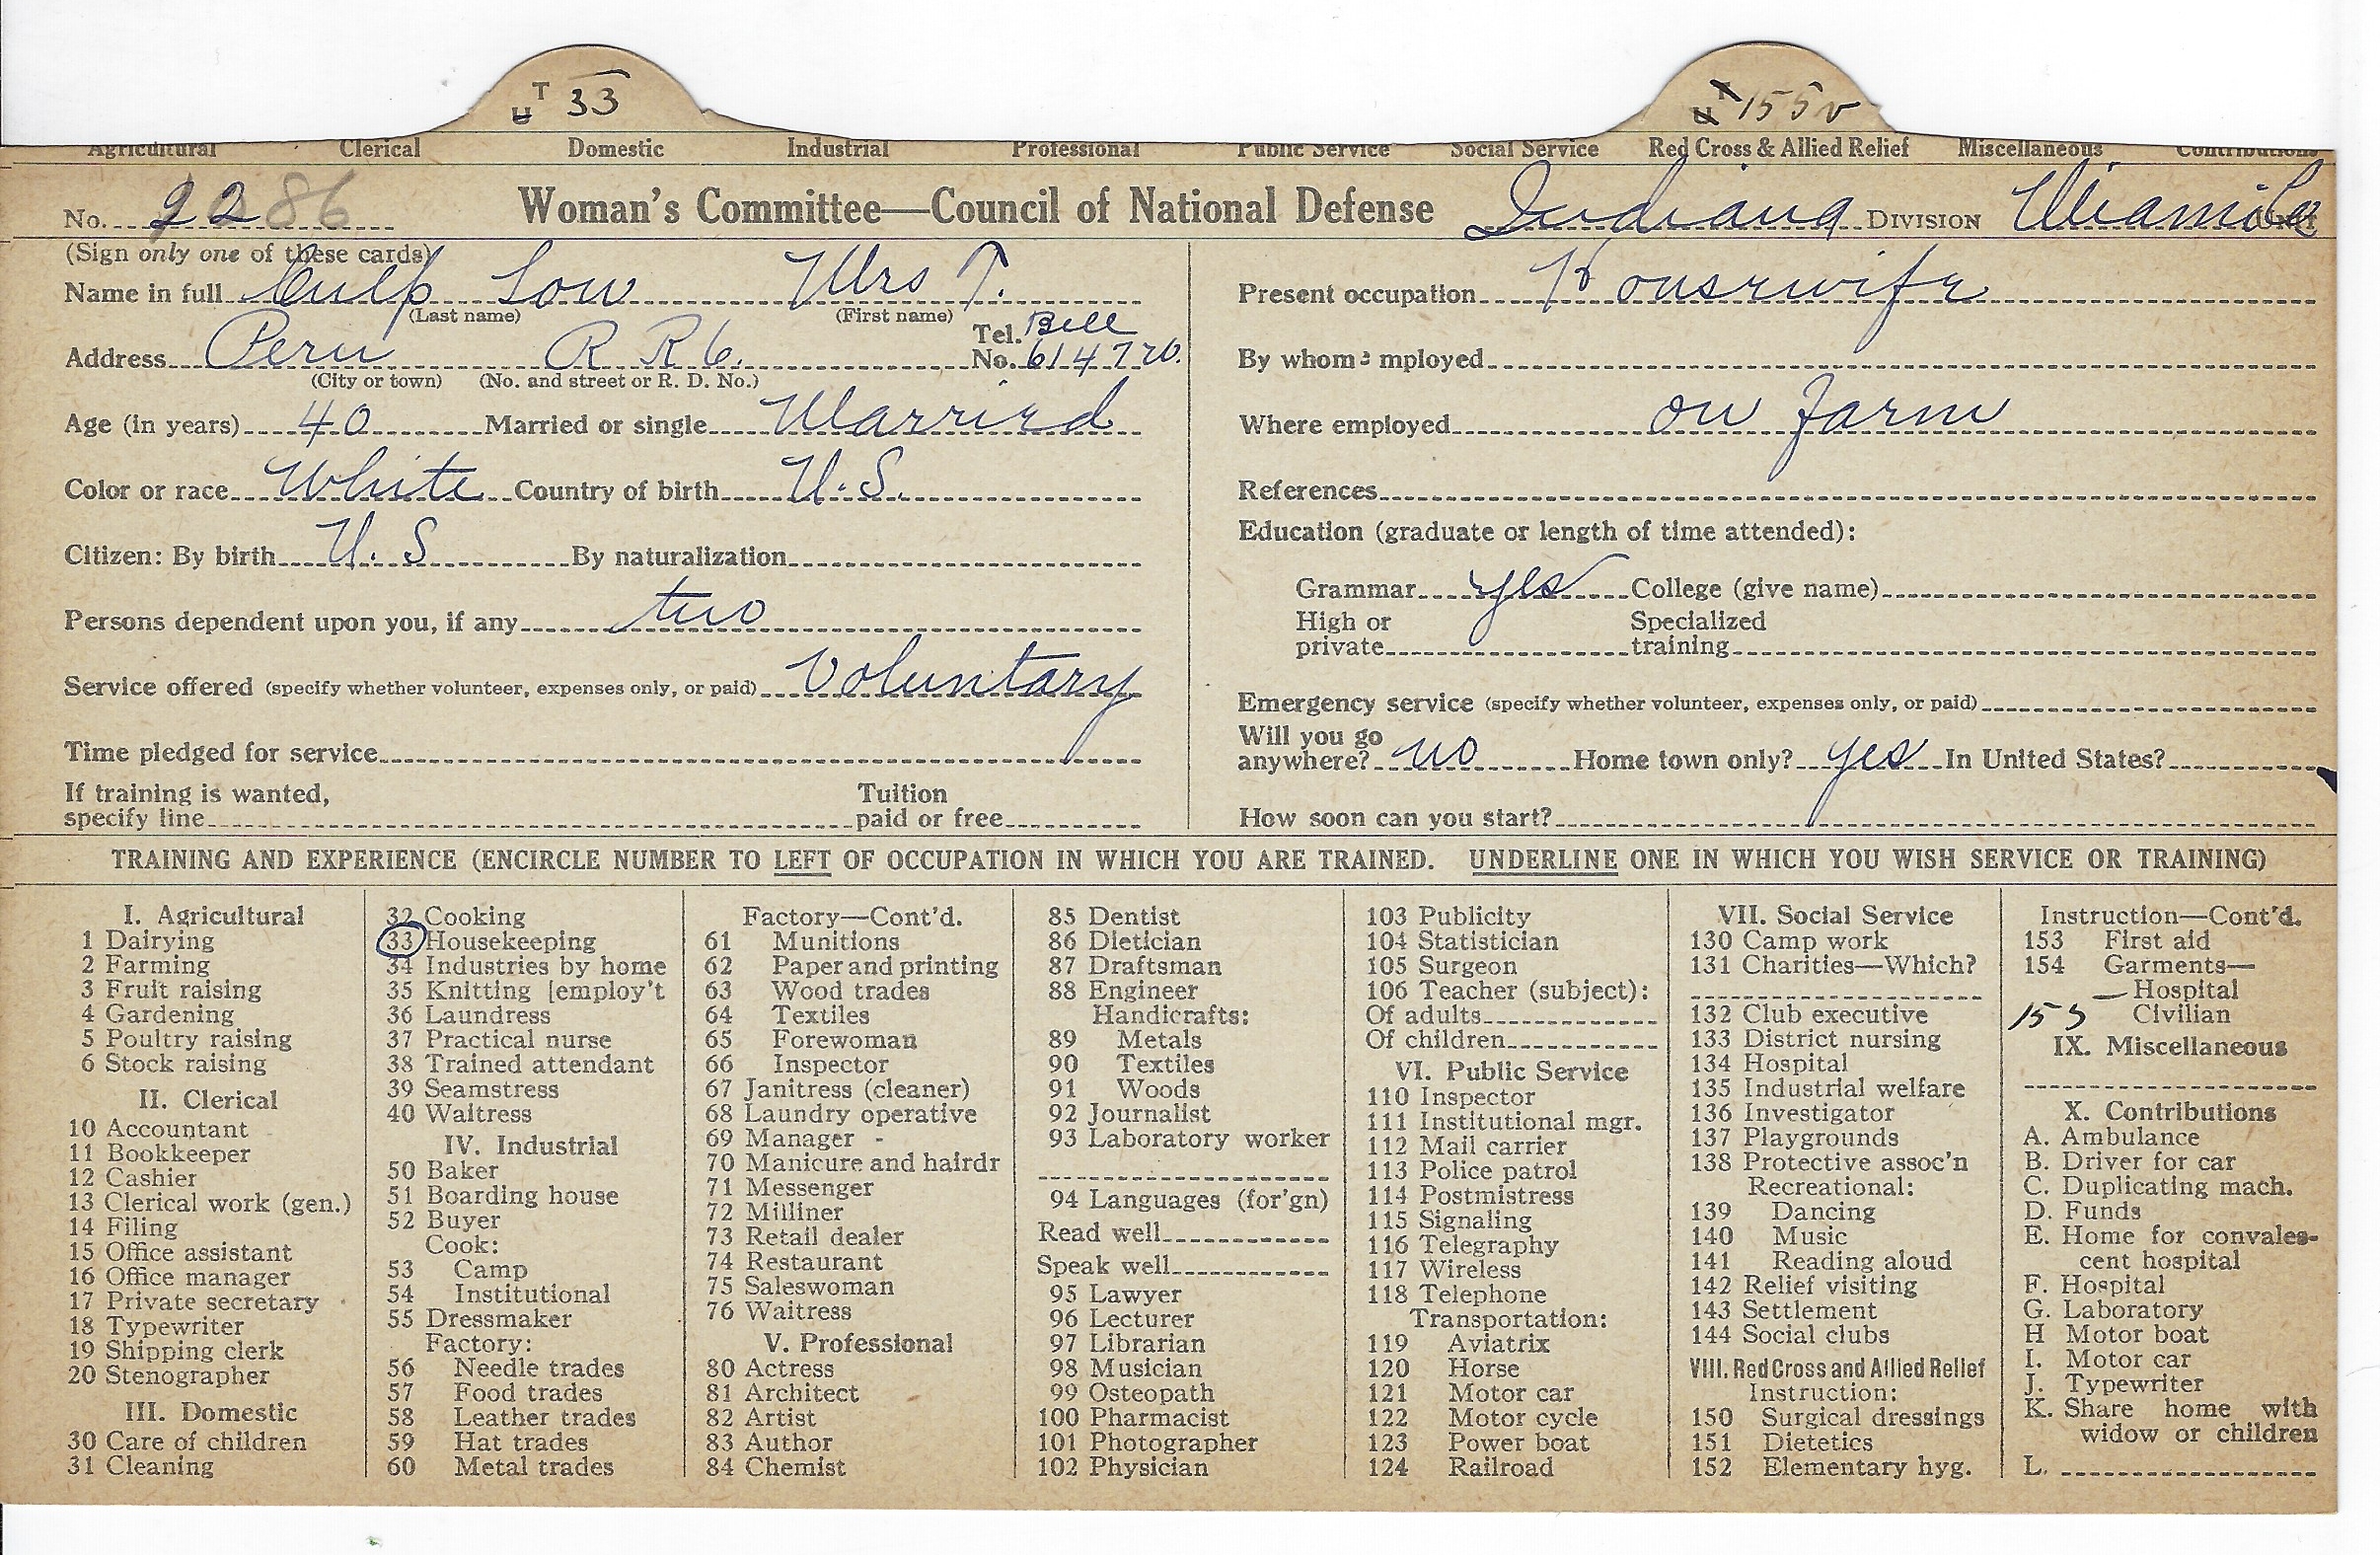 U T 33
U T 155v
Agricultural Clerical Domestic Industrial Professional Public Service Social Service Red Cross & Allied Relief Miscellaneous Contributions
No. 2286 Woman's Committee—Council of National Defense Indiana DIVISION Miami Co UNIT
(Sign only one of these cards)
Name in full Culp Low Mrs T.
(Last name) (First name)
Address Peru R R 6. Tel. No. Bell
(City or town) (No. and street or R. D. No.)
Age (in years) 40 Married or single Married
Color or race White Country of birth U.S.
Citizen: By birth U. S By naturalization
Persons dependent upon you, if any two
Service offered (specify whether volunteer, expenses only, or paid) Voluntary
Time pledged for service
If training is wanted, specify line Tuition paid or free
Present occupation Housewife
By whom employed
Where employed on farm
References
Education (graduate or length of time attended):
Grammar yes College (give name)
High or private Specialized training
Emergency service (specify whether volunteer, expenses only, or paid)
Will you go anywhere? no Home town only? yes In United States?
How soon can you start?
TRAINING AND EXPERIENCE (ENCIRCLE NUMBER TO LEFT OF OCCUPATION IN WHICH YOU ARE TRAINED. UNDERLINE ONE IN WHICH YOU WISH SERVICE OR TRAINING)
I. Agricultural
1 Dairying
2 Farming
3 Fruit raising
4 Gardening
5 Poultry raising
6 Stock raising
II. Clerical
10 Accountant
11 Bookkeeper
12 Cashier
13 Clerical work (gen.)
14 Filing
15 Office assistant
16 Office manager
17 Private secretary
18 Typewriter
19 Shipping clerk
20 Stenographer
III. Domestic
30 Care of children
31 Cleaning
32 Cooking
33 Housekeeping
34 Industries by home
35 Knitting [employ't
36 Laundress
37 Practical nurse
38 Trained attendant
39 Seamstress
40 Waitress
IV. Industrial
50 Baker
51 Boarding house
52 Buyer
Cook:
53 Camp
54 Institutional
55 Dressmaker
Factory:
56 Needle trades
57 Food trades
58 Leather trades
59 Hat trades
60 Metal trades
Factory—Cont'd.
61 Munitions
62 Paper and printing
63 Wood trades
64 Textiles
65 Forewoman
66 Inspector
67 Janitress (cleaner)
68 Laundry operative
69 Manager
70 Manicure and hairdr
71 Messenger
72 Milliner
73 Retail dealer
74 Restaurant
75 Saleswoman
76 Waitress
V. Professional
80 Actress
81 Architect
82 Artist
83 Author
84 Chemist
85 Dentist
86 Dietician
87 Draftsman
88 Engineer
Handicrafts:
89 Metals
90 Textiles
91 Woods
92 Journalist
93 Laboratory worker
94 Languages (for'gn)
Read well
Speak well
95 Lawyer
96 Lecturer
97 Librarian
98 Musician
99 Osteopath
100 Pharmacist
101 Photographer
102 Physician
103 Publicity
104 Statistician
105 Surgeon
106 Teacher (subject):
Of adults
Of children
VI. Public Service
110 Inspector
111 Institutional mgr.
112 Mail carrier
113 Police patrol
114 Postmistress
115 Signaling
116 Telegraphy
117 Wireless
118 Telephone
Transportation:
119 Aviatrix
120 Horse
121 Motor car
122 Motor cycle
123 Power boat
124 Railroad
VII. Social Service
130 Camp work
131 Charities—Which?
132 Club executive
133 District nursing
134 Hospital
135 Industrial welfare
136 Investigator
137 Playgrounds
138 Protective assoc'n
Recreational:
139 Dancing
140 Music
141 Reading aloud
142 Relief visiting
143 Settlement
144 Social clubs
VIII. Red Cross and Allied Relief
Instruction:
150 Surgical dressings
151 Dietetics
152 Elementary hyg.
Instruction—Cont'd.
153 First aid
154 Garments—
Hospital
155 Civilian
IX. Miscellaneous
X. Contributions
A. Ambulance
B. Driver for car
C. Duplicating mach.
D. Funds
E. Home for convales-
cent hospital
F. Hospital
G. Laboratory
H Motor boat
I. Motor car
J. Typewriter
K. Share home with
widow or children
L.